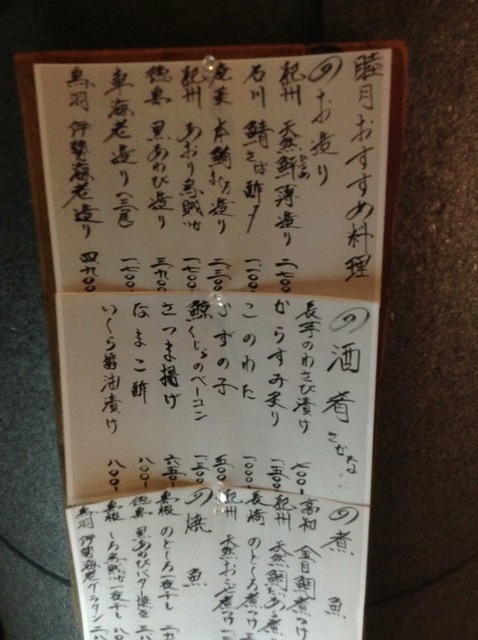 睦月おすすめ料理
のお造り
紀州 天然鮃薄造り 二七〇〇
石川 鯖さば酢〆 一、一〇〇
本鮪お造り 二三〇〇
紀州 あおり烏賊 一、七〇〇
徳島 黒あわび造り 三九〇〇
車海老造り(三尾) 一、七〇〇
鳥羽 伊勢海老造り 四九〇〇
の酒肴 さかな…
長芋のわさび漬け 七〇〇
からすみ炙り 一五〇〇
このわた 一〇〇〇
かずの子 五〇〇
鯨くじらのベーコン 一、三〇〇
さつま揚げ 六五〇
なまこ酢 八〇〇
いくら醤油漬け 八〇〇
の煮魚
高知 金目鯛煮つけ
紀州 天然鯛あら煮
長崎 のどぐろ煮つけ
紀州 天然おこぜ煮つけ
の焼魚
島根 のどぐろ一夜干し
徳島 黒あわびバタ焼き
島根 しろ烏賊一夜干し
鳥羽 伊勢海老グラタン